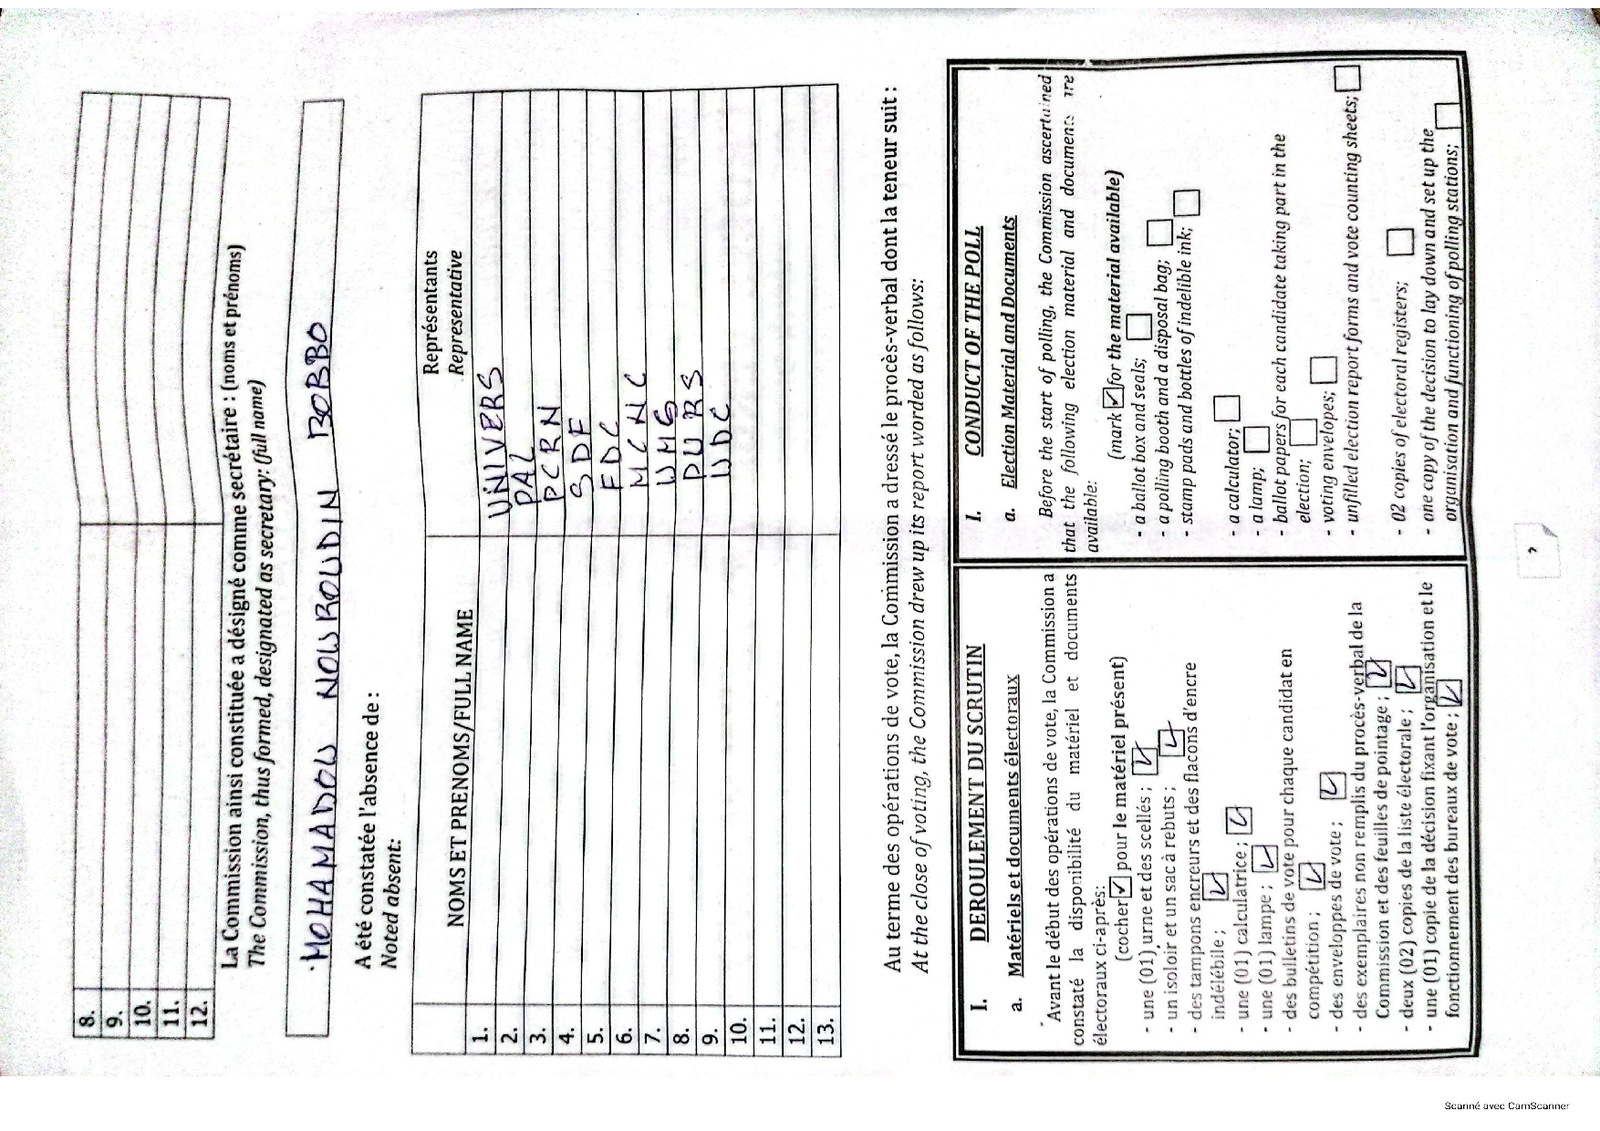 8.
9.
10.
11.
12.
La Commission ainsi constituée a désigné comme secrétaire : (noms et prénoms)
The Commission, thus formed, designated as secretary: (full name)
MOHAMADOU NOUROUDIN BOBBO
A été constatée l'absence de :
Noted absent:
NOMS ET PRENOMS/FULL NAME
Représentants
Representative
1. UNIVERS
2. PAL
3. PCRN
4. SDF
5. FDC
6. MCNC
7. UMS
8. PURS
9. UDC
10.
11.
12.
13.
Au terme des opérations de vote, la Commission a dressé le procès-verbal dont la teneur suit :
At the close of voting, the Commission drew up its report worded as follows:
I. DEROULEMENT DU SCRUTIN
a. Matériels et documents électoraux
Avant le début des opérations de vote, la Commission a
constaté la disponibilité du matériel et documents
électoraux ci-après:
(cocher ☑ pour le matériel présent)
- une (01) urne et des scellés ; ☑
- un isoloir et un sac à rebuts ; ☑
- des tampons encreurs et des flacons d'encre
indélébile ; ☑
- une (01) calculatrice ; ☑
- une (01) lampe ; ☑
- des bulletins de vote pour chaque candidat en
compétition ; ☑
- des enveloppes de vote ; ☑
- des exemplaires non remplis du procès-verbal de la
Commission et des feuilles de pointage ; ☑
- deux (02) copies de la liste électorale ; ☑
- une (01) copie de la décision fixant l'organisation et le
fonctionnement des bureaux de vote ; ☑
I. CONDUCT OF THE POLL
a. Election Material and Documents
Before the start of polling, the Commission ascertained
that the following election material and documents are
available:
(mark ☑ for the material available)
- a ballot box and seals; ☐
- a polling booth and a disposal bag; ☐
- stamp pads and bottles of indelible ink; ☐
- a calculator; ☐
- a lamp; ☐
- ballot papers for each candidate taking part in the
election; ☐
- voting envelopes; ☐
- unfilled election report forms and vote counting sheets; ☐
- 02 copies of electoral registers; ☐
- one copy of the decision to lay down and set up the
organisation and functioning of polling stations; ☐
Scanné avec CamScanner